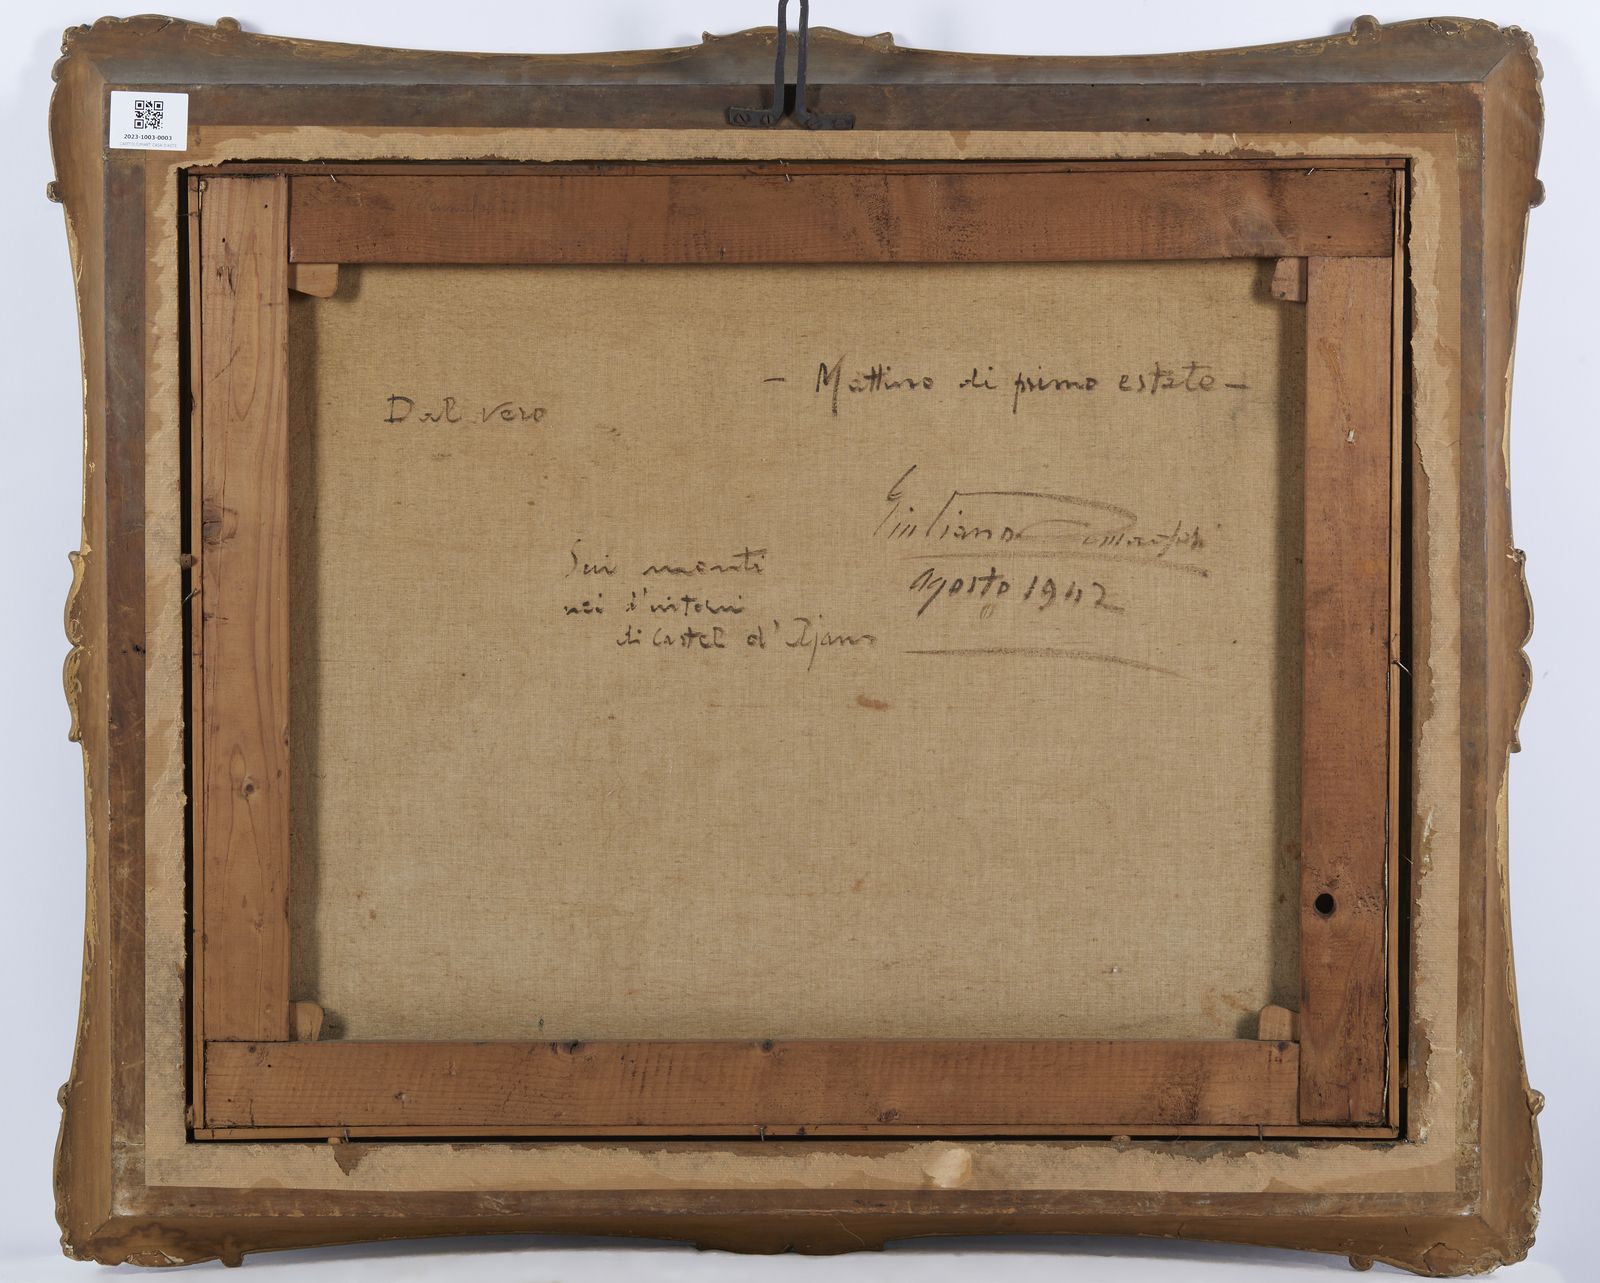 2023-1003-0003
CAPITOLIUMART CASA D'ASTE
Dal vero
- Mattino di primo estate -
Giuliano
agosto 1942
Sui monti
nei d'intorni
di Castel d'Ajano